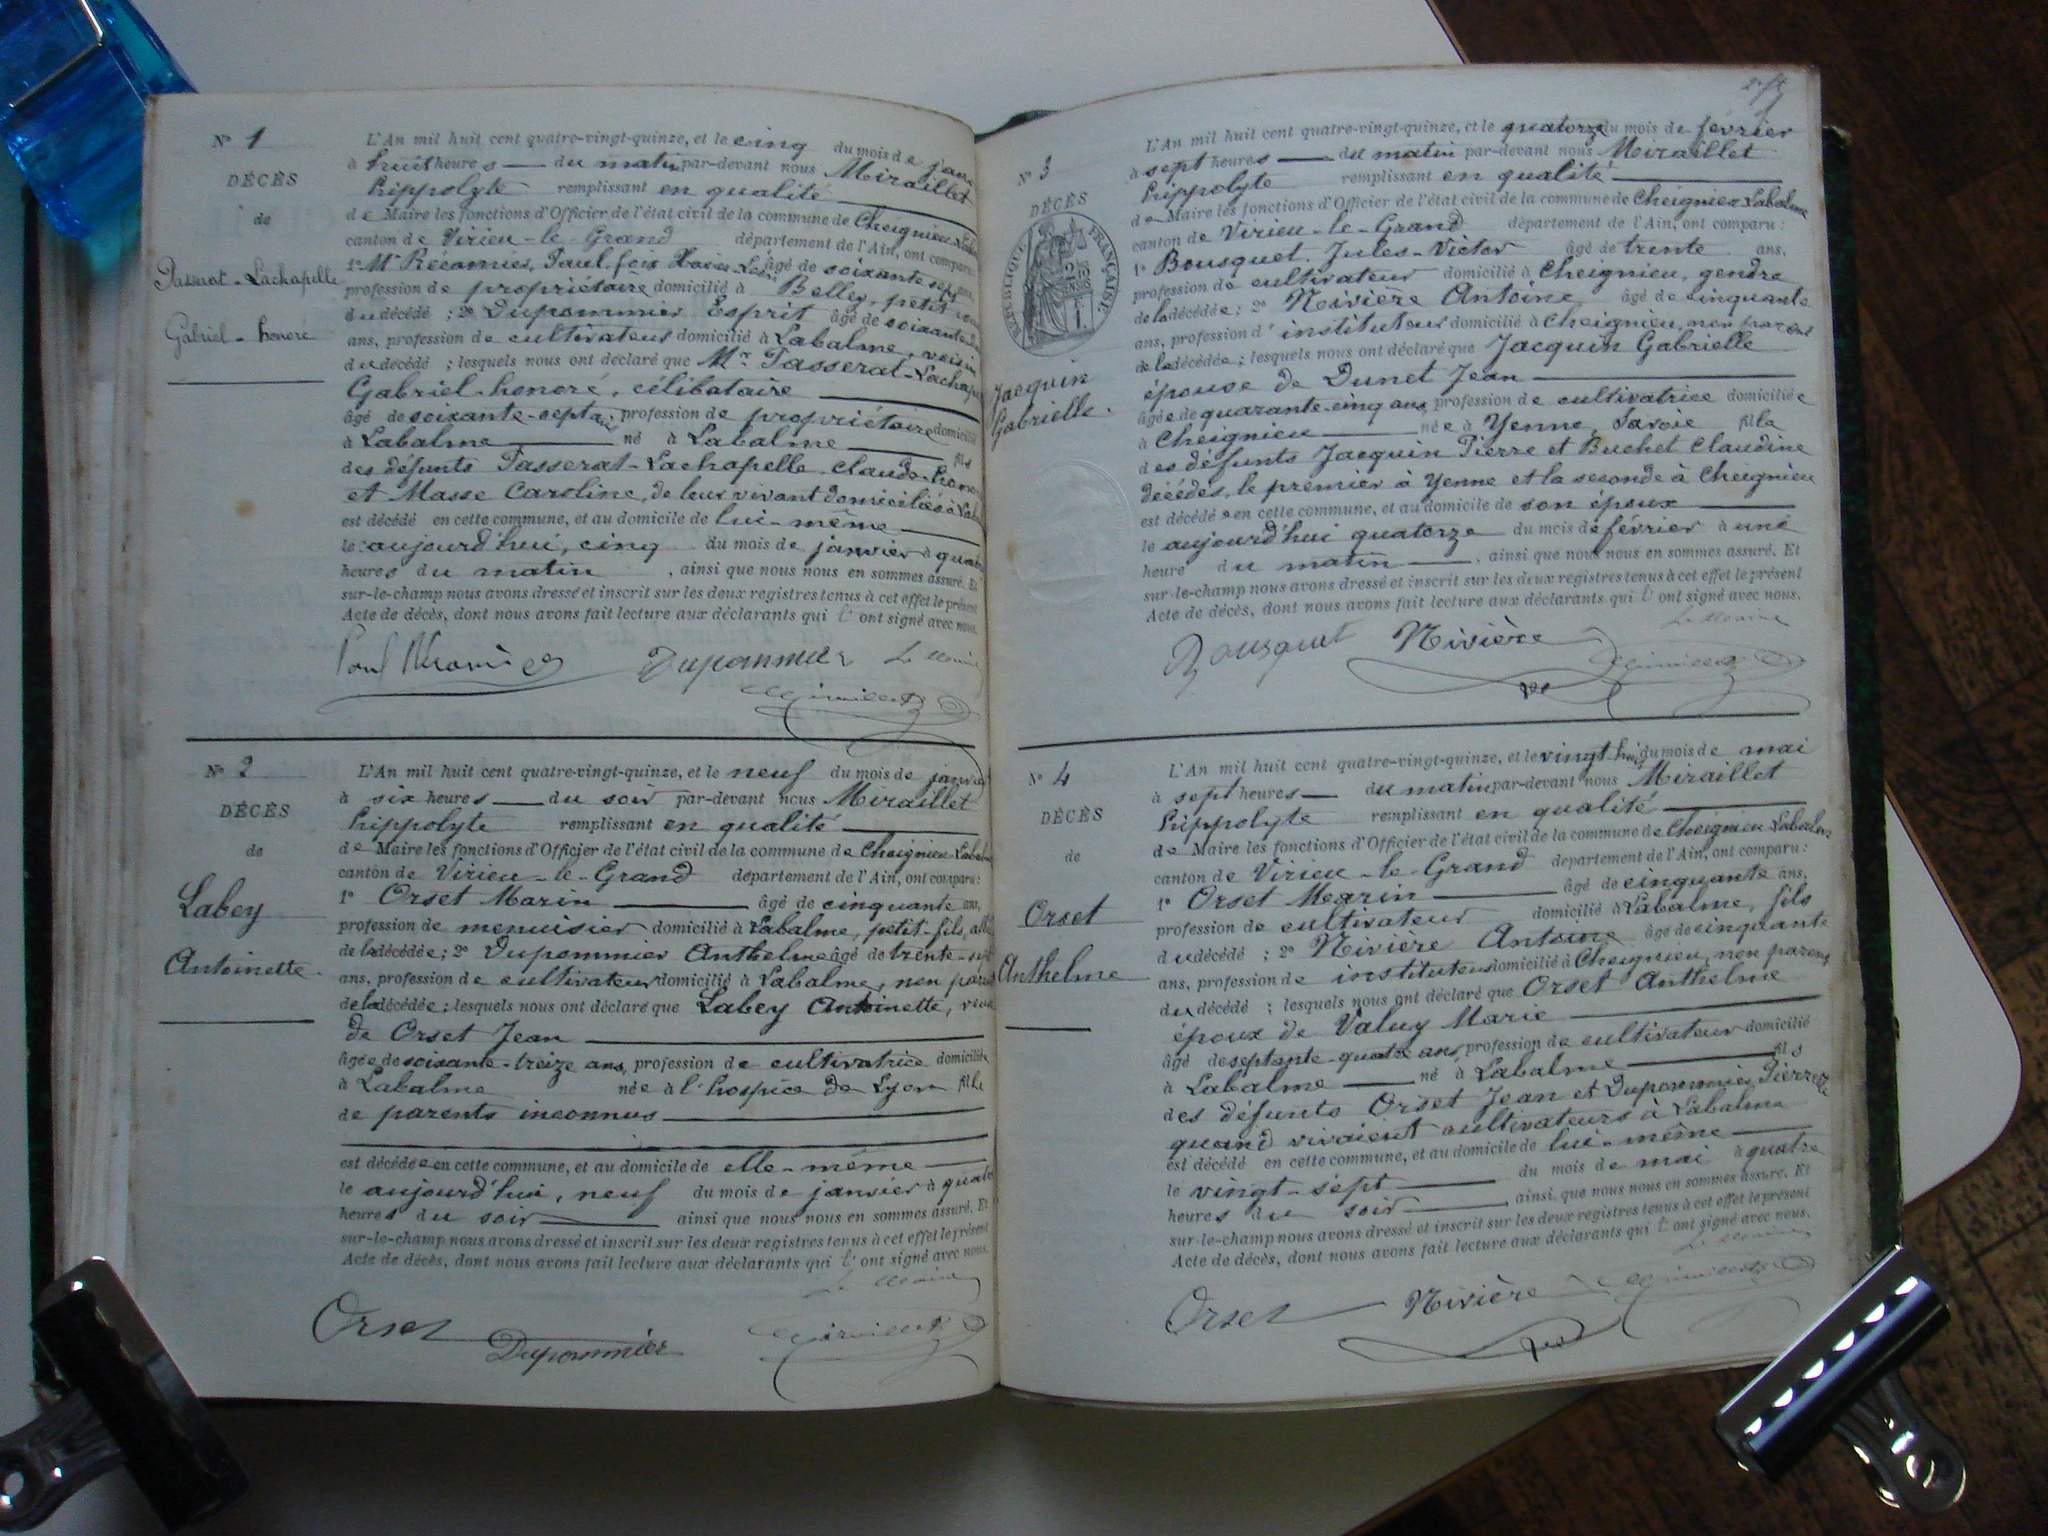 N° 1
DÉCÈS
de
Passerat-Lachapelle
Gabriel-honoré
L'An mil huit cent quatre-vingt-quinze, et le cinq du mois de
à huit heures du matin par-devant nous Miraillet
hippolyte remplissant en qualité
de Maire les fonctions d'Officier de l'état civil de la commune de Cheignieu
canton de Virieu-le-Grand département de l'Ain, ont comparu :
1° Mr Récamier, Paul, âgé de soixante sept ans,
profession de propriétaire domicilié à Belley, petit
du décédé ; 2° Duponnier Esprit âgé de soixante
ans, profession de cultivateur domicilié à Labalme, voisin
du décédé ; lesquels nous ont déclaré que Mr. Passerat-Lachapelle
Gabriel-honoré, célibataire
âgé de soixante-sept ans profession de propriétaire domicilié
à Labalme né à Labalme fils
des défunts Passerat-Lachapelle Claude-honoré
et Masse Caroline, de leur vivant domiciliés à
est décédé en cette commune, et au domicile de lui-même
le aujourd'hui, cinq du mois de janvier à quatre
heures du matin , ainsi que nous nous en sommes assuré. Et
sur-le-champ nous avons dressé et inscrit sur les deux registres tenus à cet effet le présent
Acte de décès, dont nous avons fait lecture aux déclarants qui l'ont signé avec nous.
Paul Récamier Duponnier Le Maire
Miraillet
N° 2
DÉCÈS
de
Labey
Antoinette
L'An mil huit cent quatre-vingt-quinze, et le neuf du mois de janvier
à six heures du soir par-devant nous Miraillet
hippolyte remplissant en qualité
de Maire les fonctions d'Officier de l'état civil de la commune de Cheignieu Labalme
canton de Virieu-le-Grand département de l'Ain, ont comparu :
1° Orset Marin âgé de cinquante ans,
profession de menuisier domicilié à Labalme, petit-fils,
de la décédée ; 2° Duponnier Anthelme âgé de trente-
ans, profession de cultivateur domicilié à Labalme, non parent
de la décédée ; lesquels nous ont déclaré que Labey Antoinette, veuve
de Orset Jean
âgée de soixante-treize ans, profession de cultivatrice domiciliée
à Labalme née à l'hospice de Lyon fille
de parents inconnus
est décédée en cette commune, et au domicile de elle-même
le aujourd'hui, neuf du mois de janvier à quatre
heures du soir ainsi que nous nous en sommes assuré. Et
sur-le-champ nous avons dressé et inscrit sur les deux registres tenus à cet effet le présent
Acte de décès, dont nous avons fait lecture aux déclarants qui l'ont signé avec nous.
Le Maire
Orset Duponnier Miraillet
N° 3
DÉCÈS
RÉPUBLIQUE FRANÇAISE
Jacquin
Gabrielle
L'An mil huit cent quatre-vingt-quinze, et le quatorze du mois de février
à sept heures du matin par-devant nous Miraillet
hippolyte remplissant en qualité
de Maire les fonctions d'Officier de l'état civil de la commune de Cheignieu Labalme
canton de Virieu-le-Grand département de l'Ain, ont comparu :
1° Bousquet, Jules-Victor âgé de trente ans,
profession de cultivateur domicilié à Cheignieu, gendre
de la décédée ; 2° Nivière Antoine âgé de cinquante
ans, profession d'instituteur domicilié à Cheignieu, non parent
de la décédée ; lesquels nous ont déclaré que Jacquin Gabrielle
épouse de Dunet Jean
âgée de quarante-cinq ans, profession de cultivatrice domiciliée
à Cheignieu née à Yenne, Savoie fille
des défunts Jacquin Pierre et Buchet Claudine
décédés, le premier à Yenne et la seconde à Cheignieu
est décédée en cette commune, et au domicile de son époux
le aujourd'hui quatorze du mois de février à une
heure du matin , ainsi que nous nous en sommes assuré. Et
sur-le-champ nous avons dressé et inscrit sur les deux registres tenus à cet effet le présent
Acte de décès, dont nous avons fait lecture aux déclarants qui l'ont signé avec nous.
Bousquet Nivière Le Maire
Miraillet
N° 4
DÉCÈS
de
Orset
Anthelme
L'An mil huit cent quatre-vingt-quinze, et le vingt-huit du mois de mai
à sept heures du matin par-devant nous Miraillet
hippolyte remplissant en qualité
de Maire les fonctions d'Officier de l'état civil de la commune de Cheignieu Labalme
canton de Virieu-le-Grand département de l'Ain, ont comparu :
1° Orset Marin âgé de cinquante ans,
profession de cultivateur domicilié à Labalme, fils
du décédé ; 2° Nivière Antoine âgé de cinquante
ans, profession de instituteur domicilié à Cheignieu, non parent
du décédé ; lesquels nous ont déclaré que Orset Anthelme
époux de Valuy Marie
âgé de septante-quatre ans, profession de cultivateur domicilié
à Labalme né à Labalme fils
des défunts Orset Jean et Duponnier Pierrette
quand vivaient cultivateurs à Labalme
est décédé en cette commune, et au domicile de lui-même
le vingt-sept du mois de mai à quatre
heures du soir ainsi que nous nous en sommes assuré. Et
sur-le-champ nous avons dressé et inscrit sur les deux registres tenus à cet effet le présent
Acte de décès, dont nous avons fait lecture aux déclarants qui l'ont signé avec nous.
Le Maire
Orset Nivière Miraillet